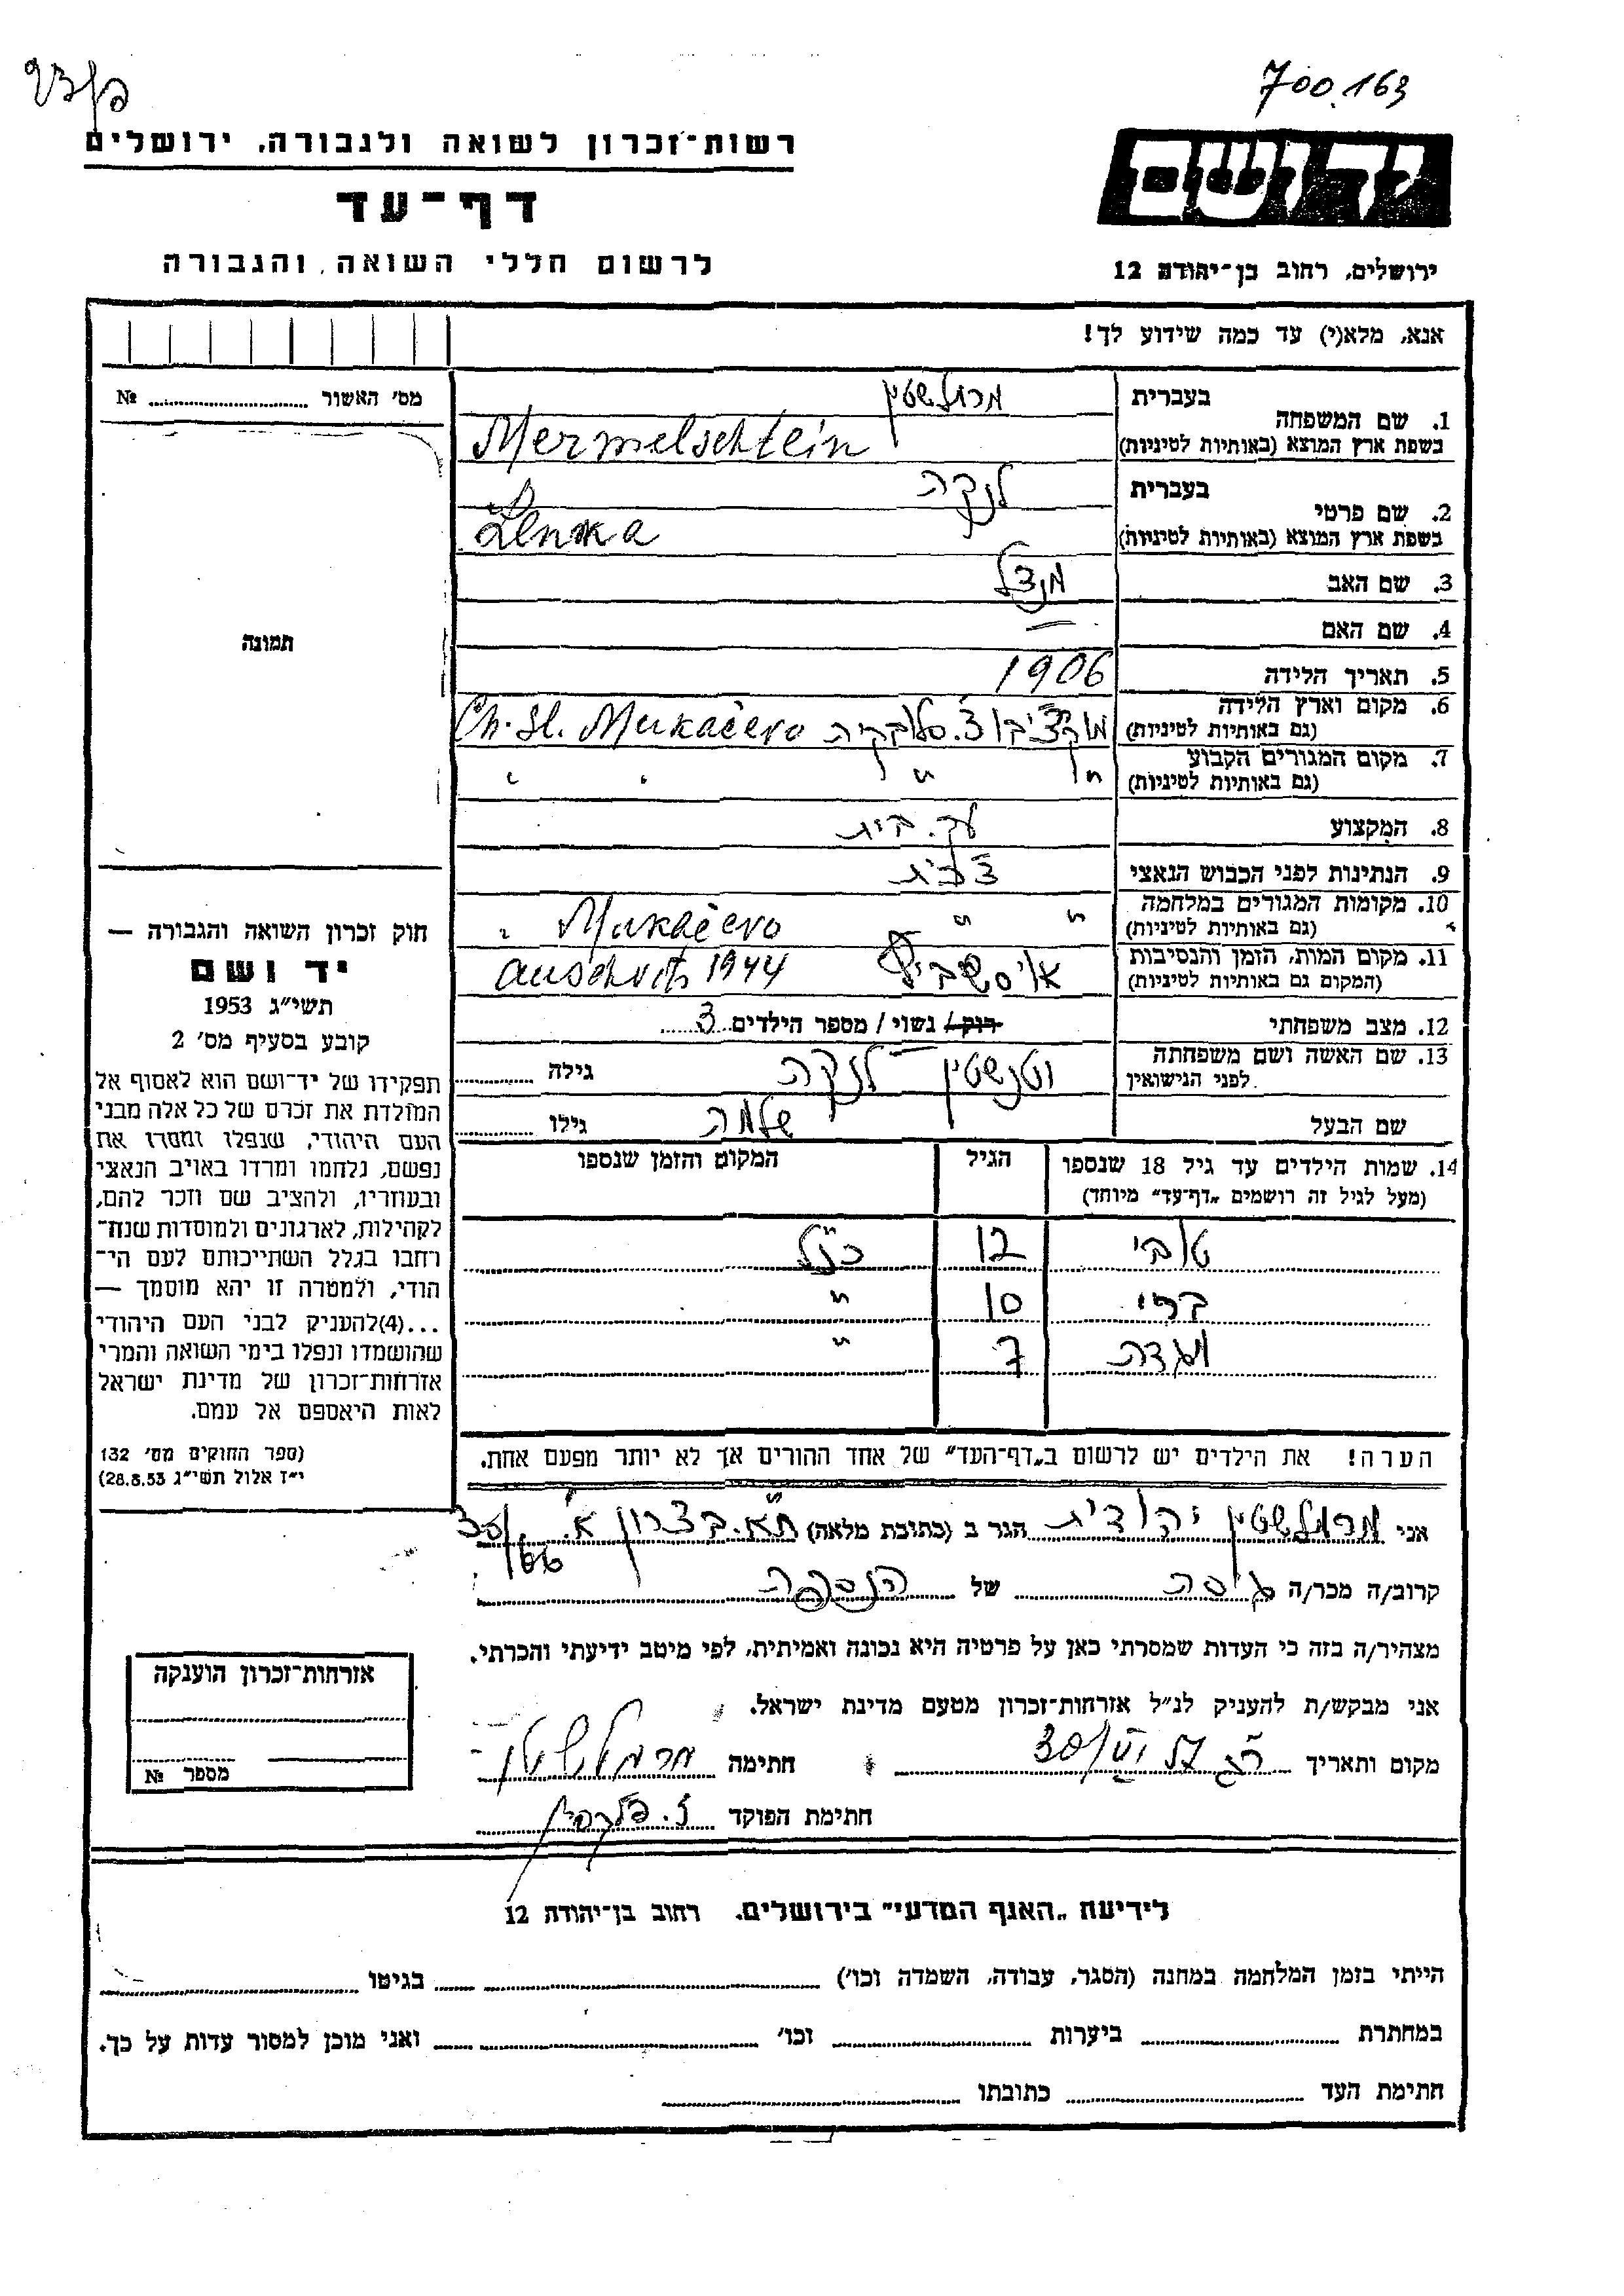 700.163
רשות־זכרון לשואה ולגבורה, ירושלים
יד ושם
דף־עד
לרשום חללי השואה והגבורה
ירושלים, רחוב בן־יהודה 12
אנא, מלא(י) עד כמה שידוע לך!
מס' האשור № 
תמונה
בעברית מרמלשטין
1. שם המשפחה
בשפת ארץ המוצא (באותיות לטיניות) Mermelschtein
בעברית לנקה
2. שם פרטי
בשפת ארץ המוצא (באותיות לטיניות) Lenka
3. שם האב מנדל
4. שם האם —
5. תאריך הלידה 1906
6. מקום וארץ הלידה
(גם באותיות לטיניות) מוקצ'בו צ'.סלובקיה Ch. Sl. Mukačevo
7. מקום המגורים הקבוע
(גם באותיות לטיניות) " " " "
8. המקצוע עק. בית
9. הנתינות לפני הכבוש הנאצי צ'כית
10. מקומות המגורים במלחמה
(גם באותיות לטיניות) " " Mukačevo "
11. מקום המות, הזמן והנסיבות
(המקום גם באותיות לטיניות) אוסשביץ Auschvits 1944
12. מצב משפחתי רוק/ נשוי/ מספר הילדים 3
13. שם האשה ושם משפחתה
לפני הנישואין לנקה גילה
שם הבעל שלמה גילו
14. שמות הילדים עד גיל 18 שנספו הגיל המקום והזמן שנספו
(מעל לגיל זה רושמים „דף־עד" מיוחד)
טובי 12 כנ"ל
10 "
מגדה 7 "
הערה! את הילדים יש לרשום ב„דף־העד" של אחד ההורים אך לא יותר מפעם אחת.
חוק זכרון השואה והגבורה —
יד ושם
תשי"ג 1953
קובע בסעיף מס' 2
תפקידו של יד־ושם הוא לאסוף אל
המולדת את זכרם של כל אלה מבני
העם היהודי, שנפלו ומסרו את
נפשם, נלחמו ומרדו באויב הנאצי
ובעוזריו, ולהציב שם וזכר להם,
לקהילות, לארגונים ולמוסדות שנח־
רחבו בגלל השתייכותם לעם הי־
הודי, ולמטרה זו יהא מוסמך —
...(4)להעניק לבני העם היהודי
שהושמדו ונפלו בימי השואה והמרי
אזרחות־זכרון של מדינת ישראל
לאות היאספם אל עמם.
(ספר החוקים מס' 132
י"ז אלול תשי"ג 28.8.53)
אני מרמלשטין יהודית הגר ב (כתובת מלאה) ת"א. בצרון
קרוב/ה מכר/ה גיסה של הנספה
מצהיר/ה בזה כי העדות שמסרתי כאן על פרטיה היא נכונה ואמיתית, לפי מיטב ידיעתי והכרתי.
אני מבקש/ת להעניק לנ"ל אזרחות־זכרון מטעם מדינת ישראל.
מקום ותאריך חתימה מרמלשטין
חתימת הפוקד
אזרחות־זכרון הוענקה
מספר №
לידיעת „האגף המדעי" בירושלים. רחוב בן־יהודה 12
הייתי בזמן המלחמה במחנה (הסגר, עבודה, השמדה וכו') בגיטו
במחתרת ביערות וכו' ואני מוכן למסור עדות על כך.
חתימת העד כתובתו